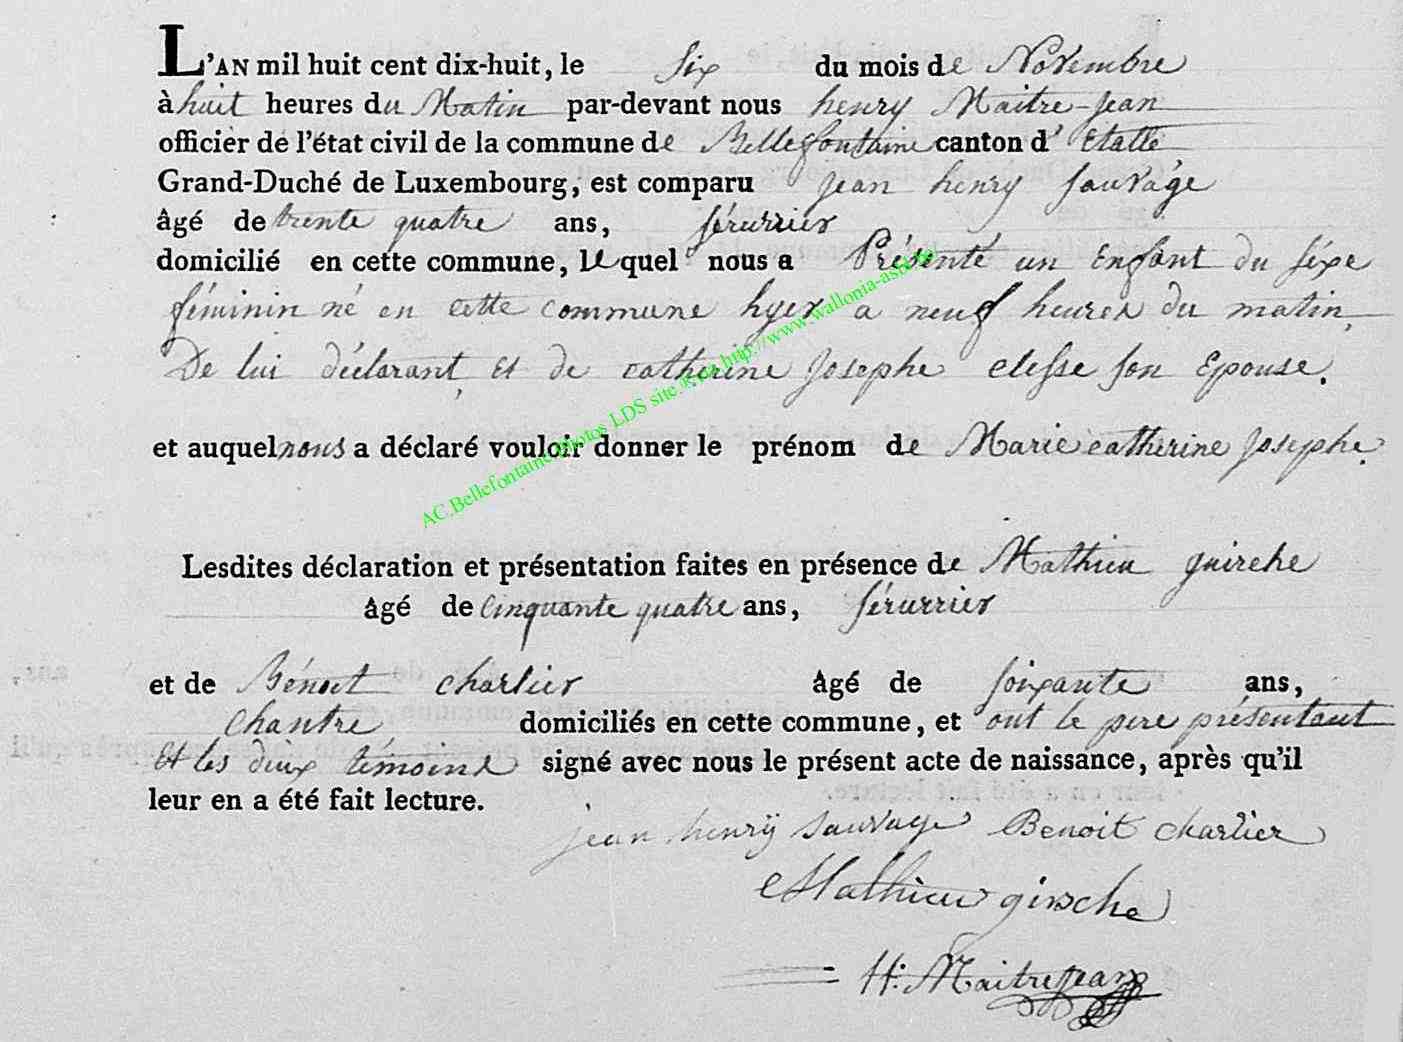 L'AN mil huit cent dix-huit, le six du mois de Novembre
à huit heures du Matin par-devant nous henry Maitre-jean
officier de l'état civil de la commune de Bellefontaine canton d'Etalle
Grand-Duché de Luxembourg, est comparu jean henry sauvage
âgé de trente quatre ans, sérurrier
domicilié en cette commune, lequel nous a Présenté un Enfant du séxe
féminin né en cette commune hyer a neuf heures du matin,
De lui déclarant et de catherine josephe clesse son Epouse.
et auquel nous a déclaré vouloir donner le prénom de Marie catherine josephe.
Lesdites déclaration et présentation faites en présence de Mathieu guirche
âgé de cinquante quatre ans, sérurrier
et de Bénoit charlier âgé de soixante ans,
chantre domiciliés en cette commune, et ont le pere présentant
et les deux témoins signé avec nous le présent acte de naissance, après qu'il
leur en a été fait lecture.
jean henrÿ sauvage Benoit charlier
Mathieu girsche
H: Maitrejean
AC Bellefontaine photos LDS site http://www.wallonia-asbl